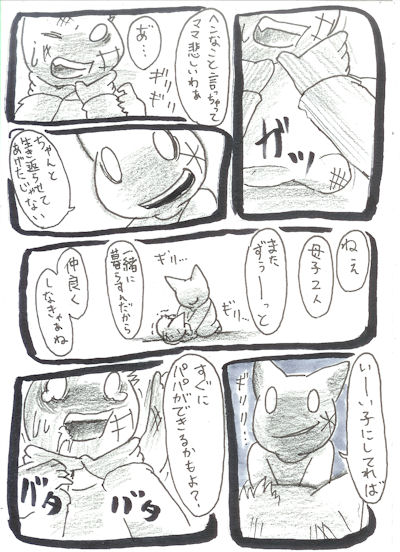 ガッ
ヘンなこと言っちゃって
ママ悲しいわぁ
あ゛…
ギリ
ギリ
ちゃんと
生き返らせて
あげたじゃない
ねぇ
母子2人
また
ずぅーーっと
一緒に
暮らすんだから
仲良く
しなきゃぁね
ギリ…
ギリ…
いーい子にしてれば
ギリリ…
すぐに
パパができるかもよ?
バタ
バタ